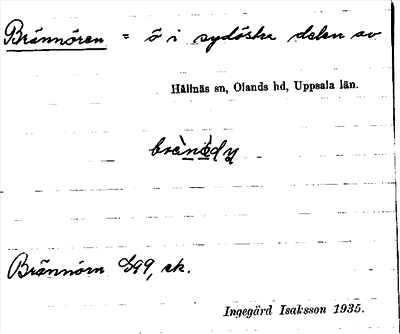 Brännören = ö i sydöstra delen av
Hållnäs sn, Olands hd, Uppsala län.
Brännörn E99, ek.
Ingegärd Isaksson 1935.